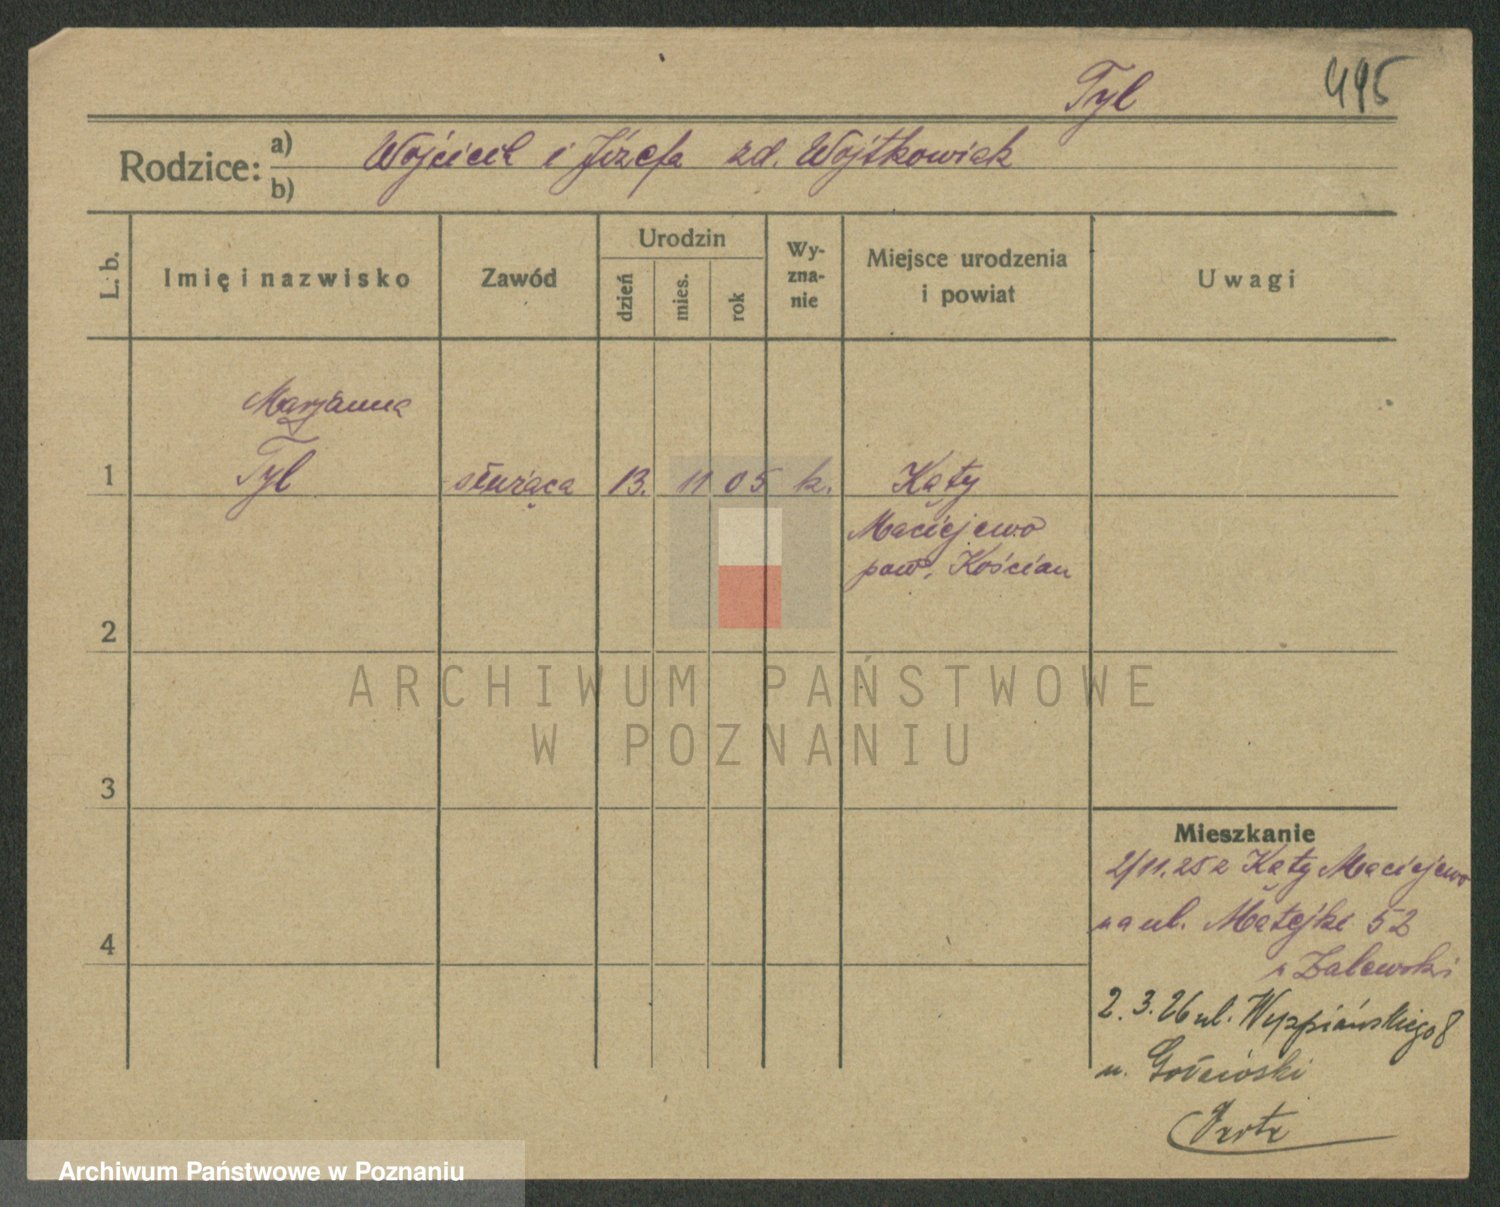 Tyl 495
Rodzice: a) Wojciech i Józefa zd. Wojtkowiak
b)
L. b. Imię i nazwisko Zawód Urodzin dzień mies. rok Wyznanie Miejsce urodzenia i powiat Uwagi
Marjanna
1 Tyl służąca 13. 11 05 k. Kąty
Maciejewo
pow. Kościan
2
ARCHIWUM PAŃSTWOWE
W POZNANIU
3
Mieszkanie
2/11.25 z Kąty Maciejewo
na ul. Matejki 52
4
u Zalewski
2.3.26 ul. Wyspiańskiego 8
u.
Archiwum Państwowe w Poznaniu